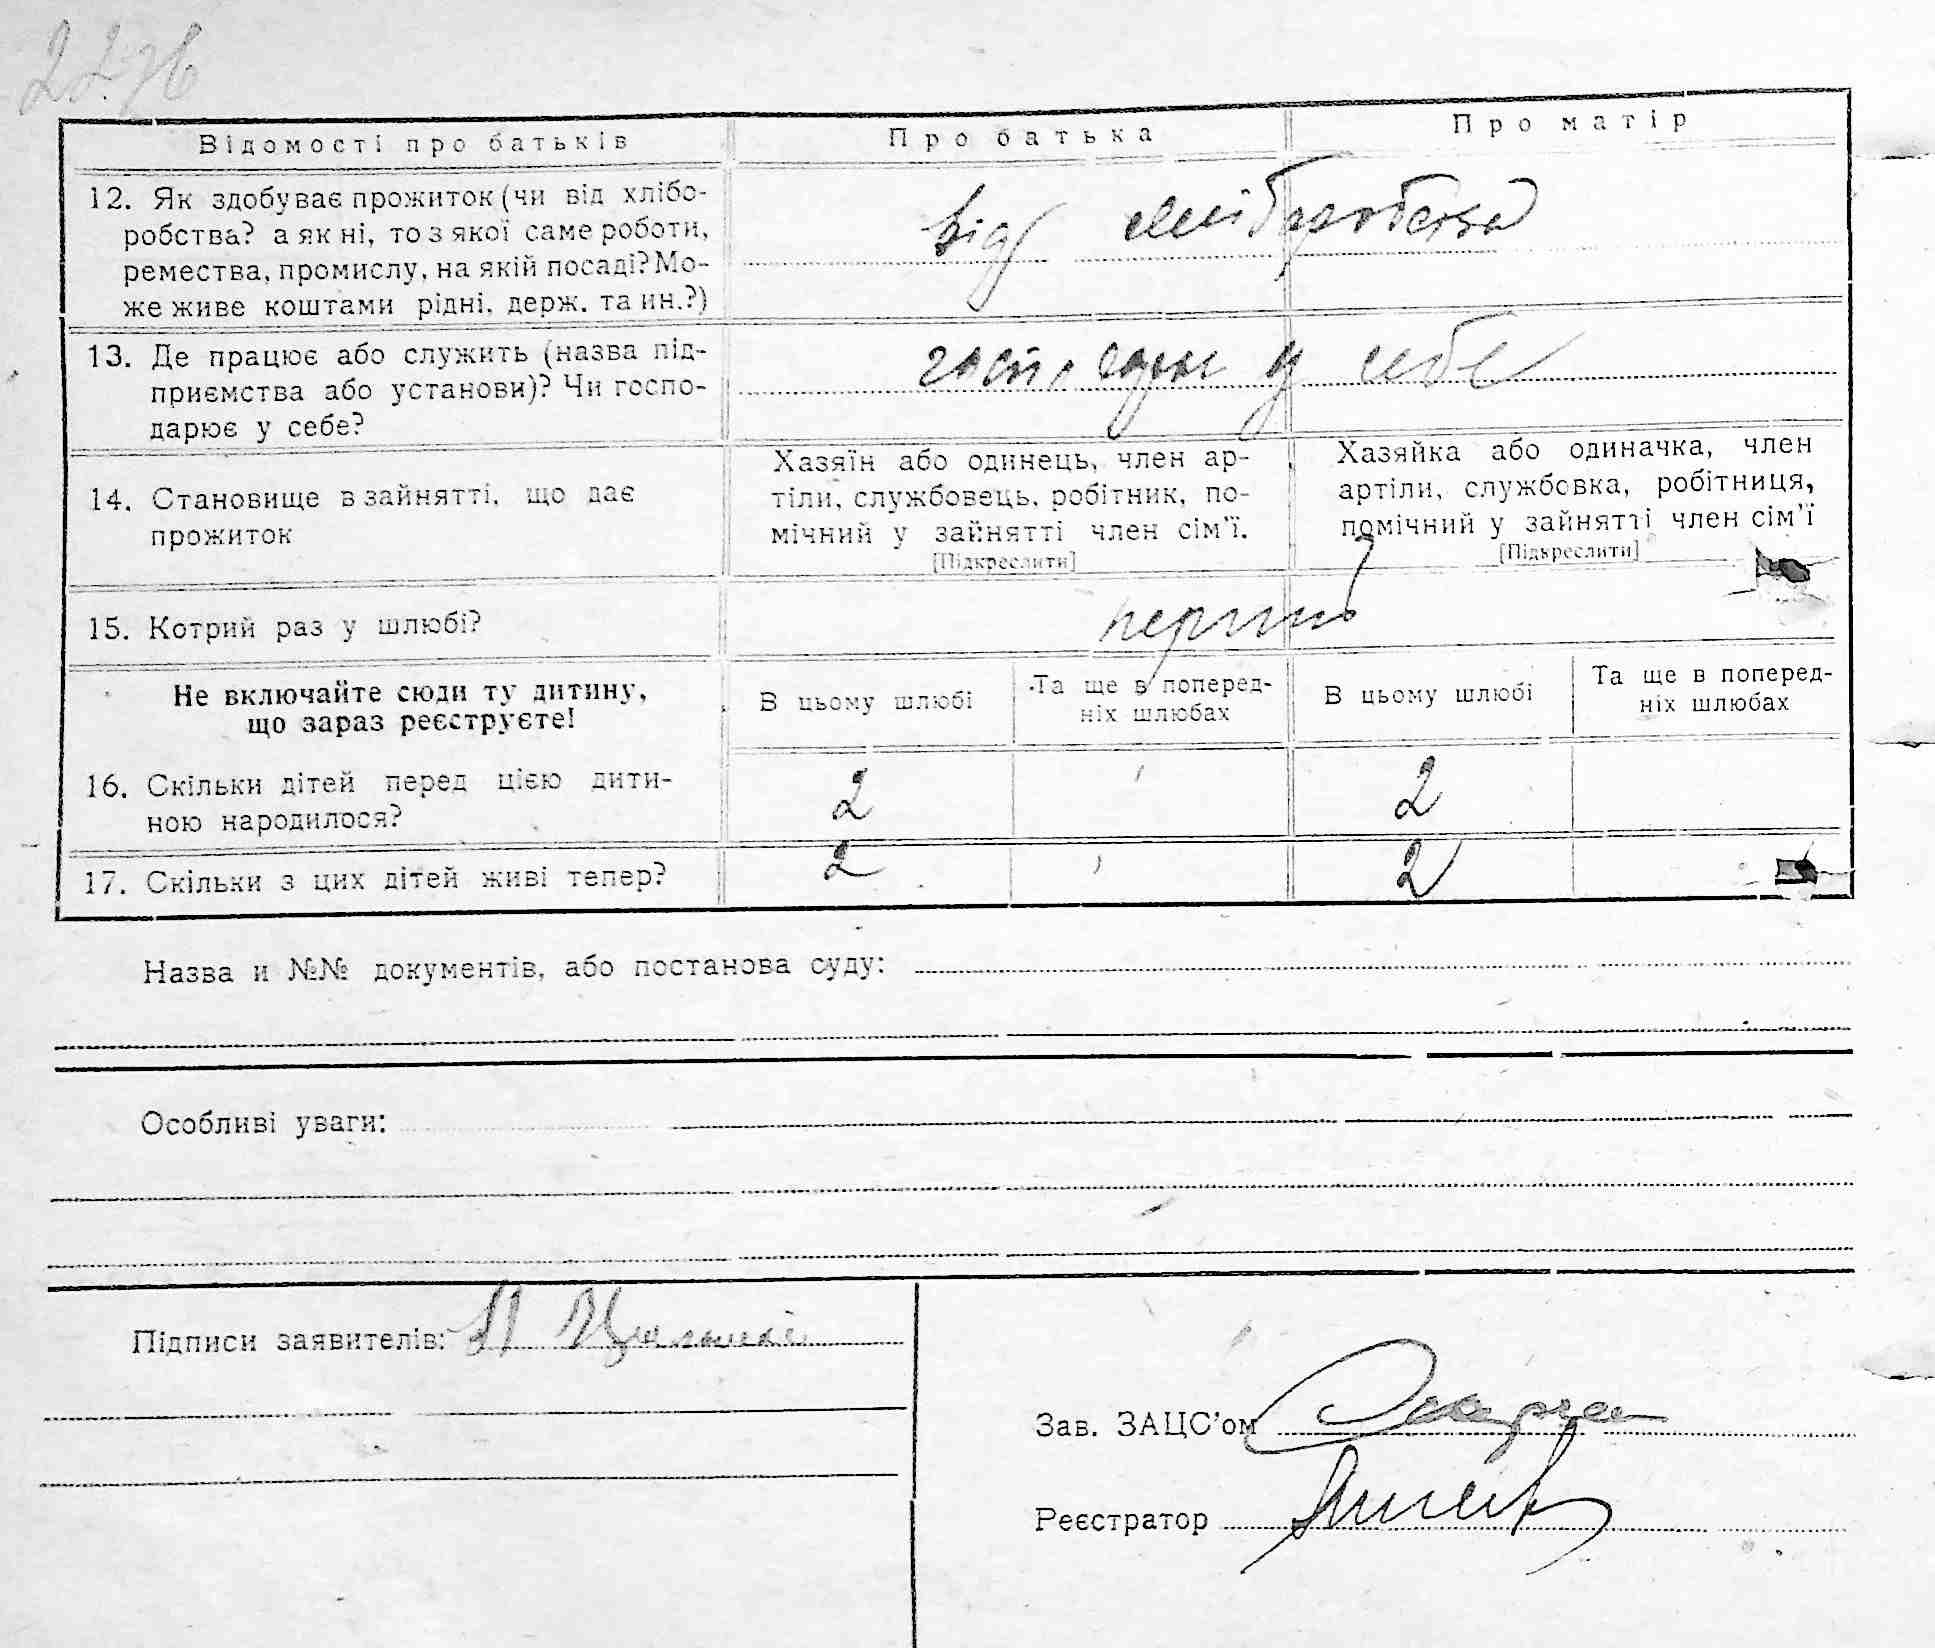 Відомості про батьків Про батька Про матір
12. Як здобуває прожиток (чи від хлібо-
робства? а як ні, то з якої саме роботи,
ремества, промислу, на якій посаді? Мо-
же живе коштами рідні, держ. та ин.?)
від хліборобства
13. Де працює або служить (назва під-
приємства або установи)? Чи госпо-
дарює у себе?
у себе
14. Становище в зайнятті, що дає
прожиток
Хазяїн або одинець, член ар-
тіли, службовець, робітник, по-
мічний у зайнятті член сім'ї.
[Підкреслити]
Хазяйка або одиначка, член
артіли, службовка, робітниця,
помічний у зайнятті член сім'ї
[Підкреслити]
15. Котрий раз у шлюбі?
Не включайте сюди ту дитину,
що зараз реєструєте!
В цьому шлюбі
Та ще в поперед-
ніх шлюбах
В цьому шлюбі
Та ще в поперед-
ніх шлюбах
16. Скільки дітей перед цією дити-
ною народилося?
2 2
17. Скільки з цих дітей живі тепер? 2 2
Назва и №№ документів, або постанова суду:
Особливі уваги:
Підписи заявителів:
Зав. ЗАЦС'ом
Реєстратор